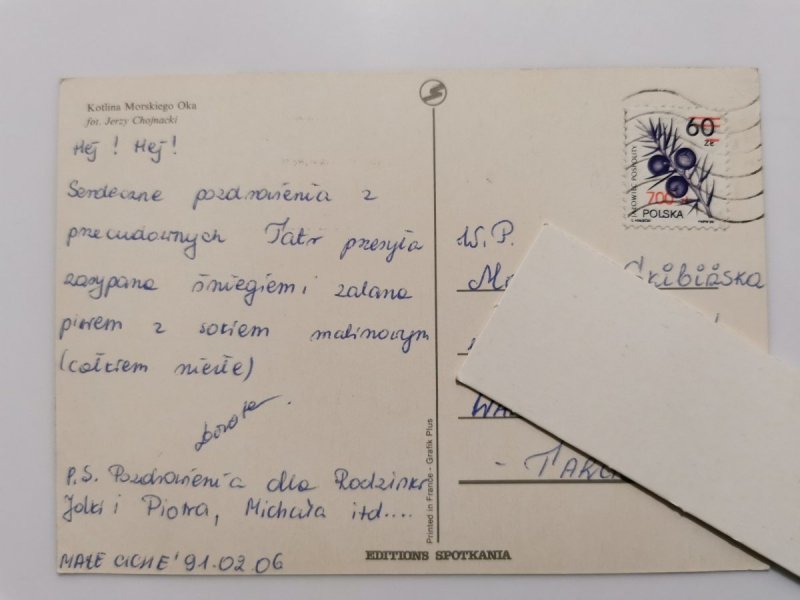 Kotlina Morskiego Oka
fot. Jerzy Chojnacki
Hej! Hej!
Serdeczne pozdrowienia z
przecudownych Tatr przesyła
zasypana śniegiem i zalana
piwem z sokiem malinowym
(całkiem nieźle)
Dorota.
P.S. Pozdrowienia dla Rodzinki
Jolki i Piotra, Michała itd....
MAŁE CICHE '91.02.06
60
ZŁ
JAŁOWIEC POSPOLITY
700
POLSKA
W.P.
Printed in France - Grafik Plus
EDITIONS SPOTKANIA